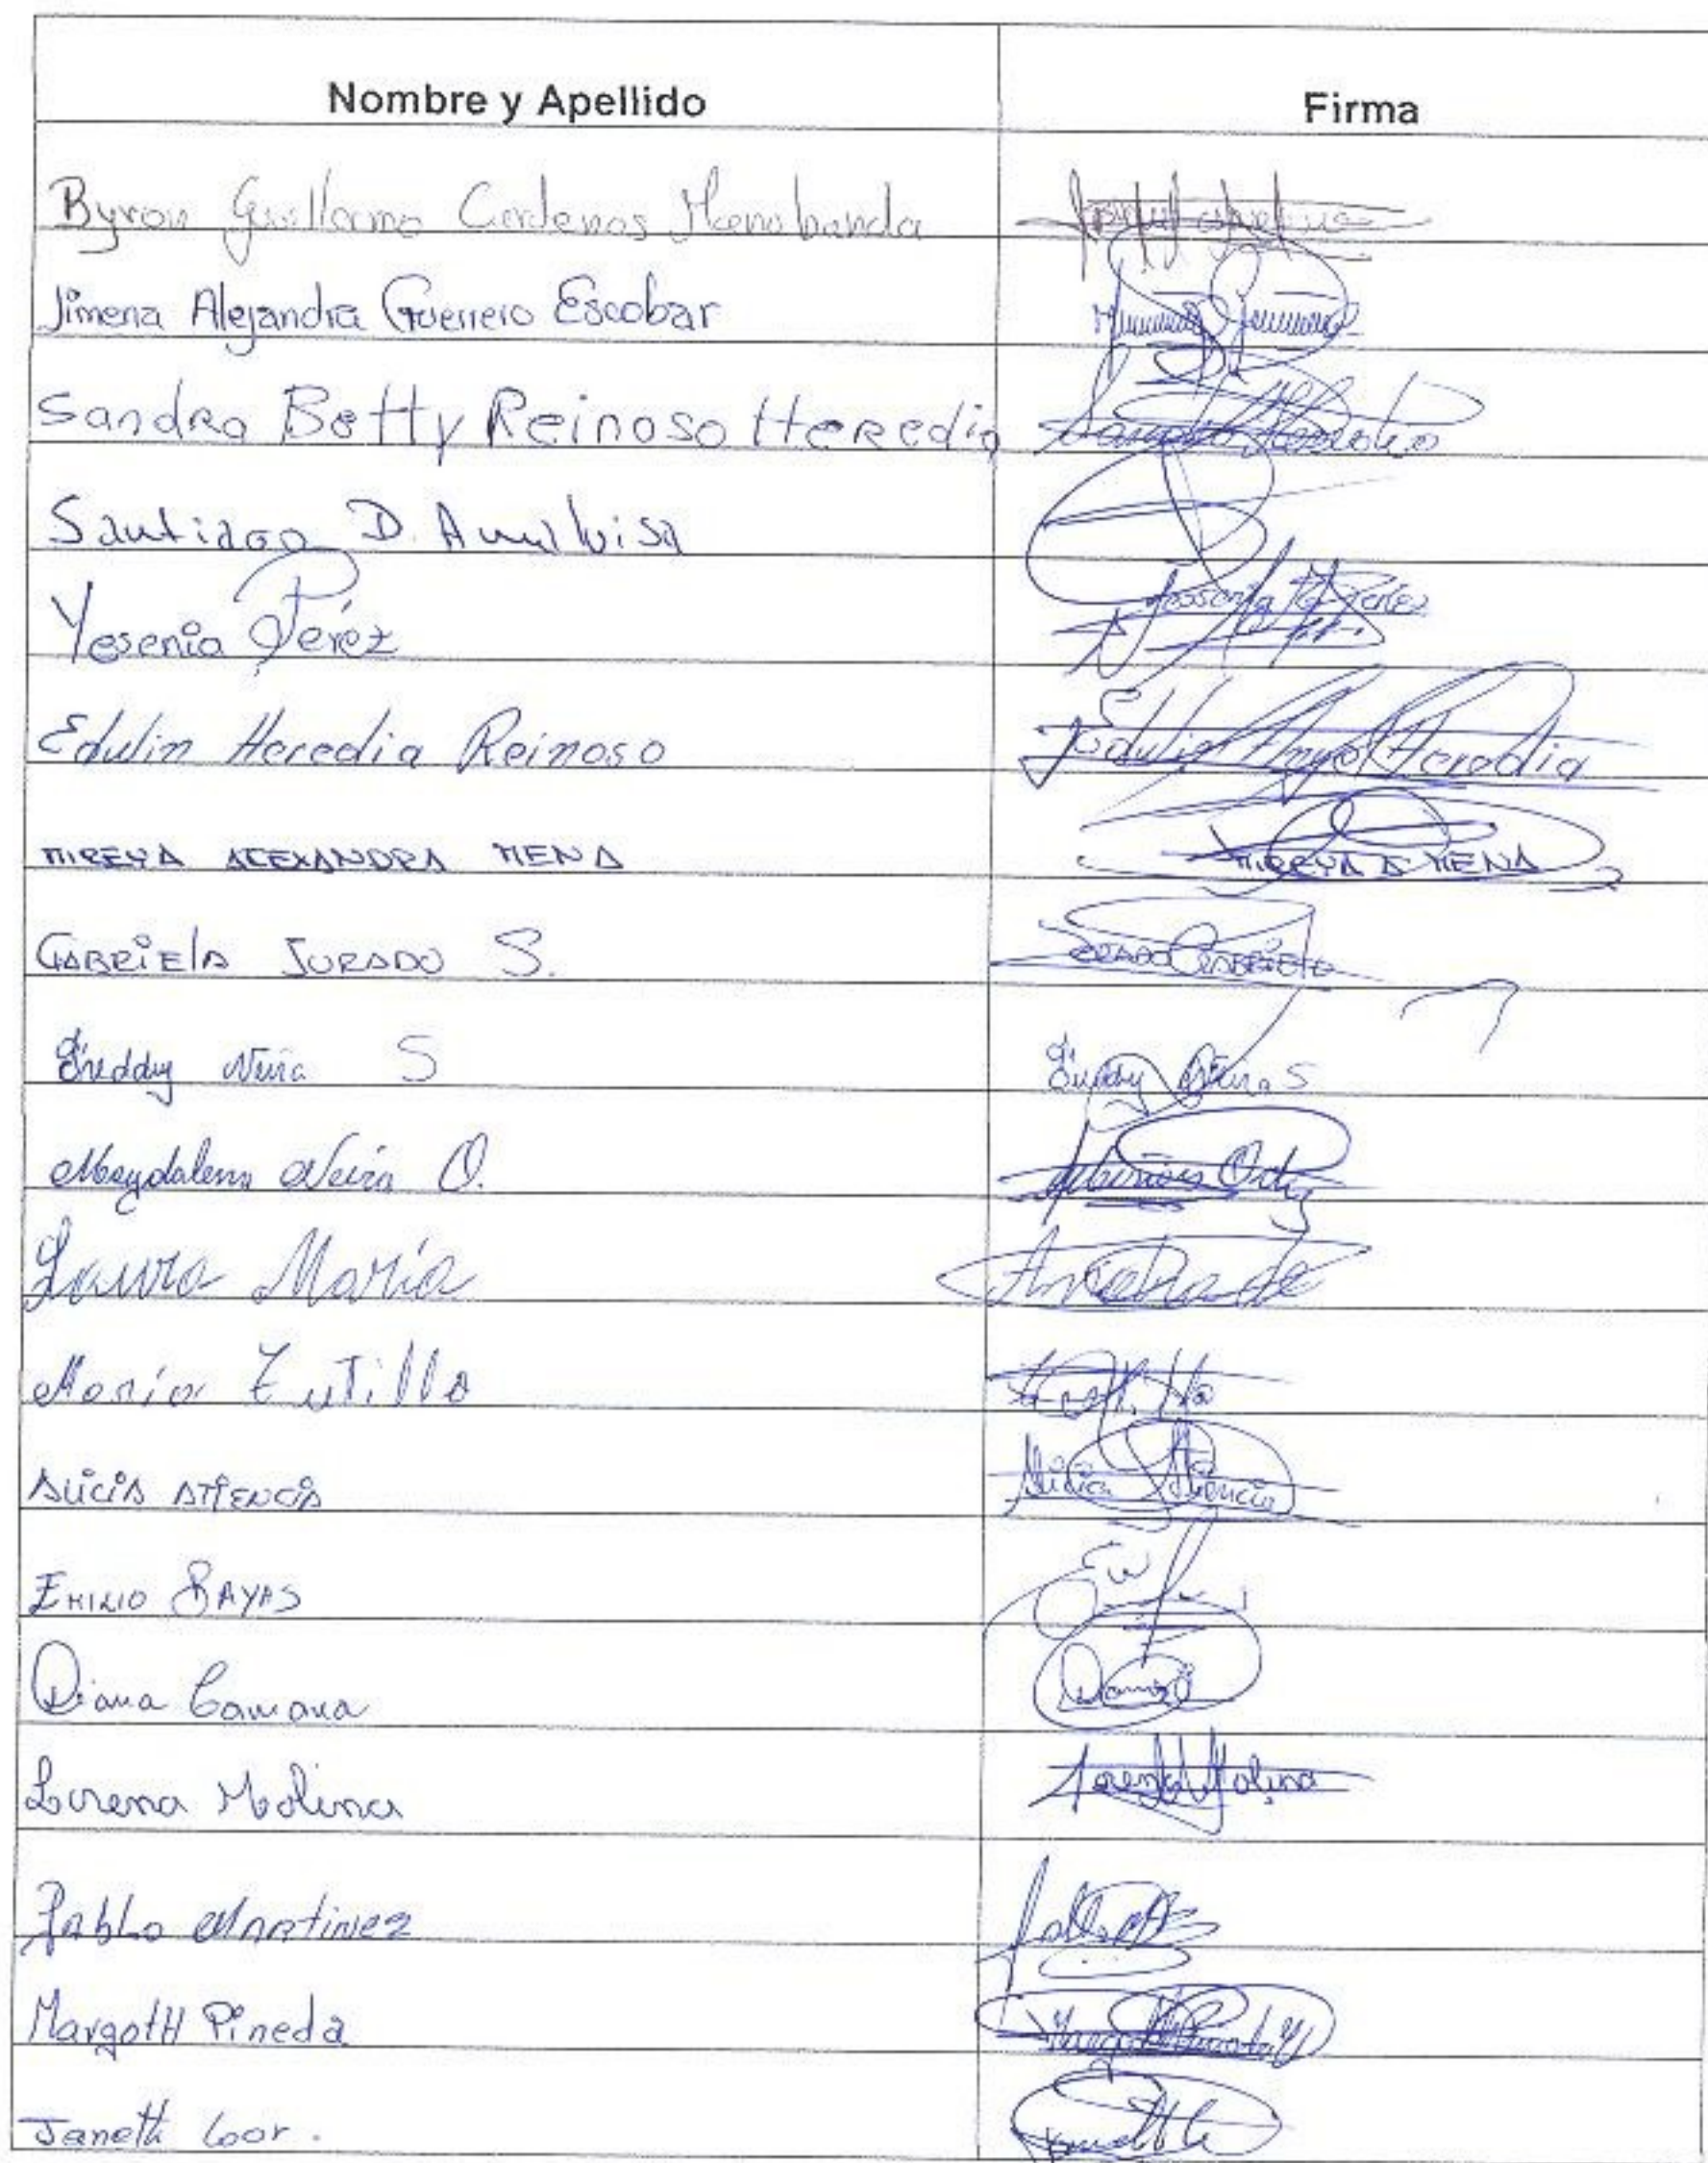 Nombre y Apellido Firma
Byron Guillermo Cardenas Manobanda
Jimena Alejandra Guerrero Escobar
Sandra Betty Reinoso Heredia Sandra Heredia
Santiago D. Amaluisa
Yesenia Pérez Yessenia Pérez
Edwin Heredia Reinoso Edwin Angel Heredia
MIREYA ALEXANDRA MENA MIREYA A MENA
GABRIELA JURADO S. JURADO GABRIELA
Freddy Neira S Freddy Neira S
Magdalena Neira O.
Laura María Andrade
María Tutillo
ALICIA ATIENCIA Alicia Atiencia
EMILIO BAYAS
Diana Camana
Lorena Molina Lorena Molina
Pablo Martinez
Margoth Pineda
Janeth Loor.